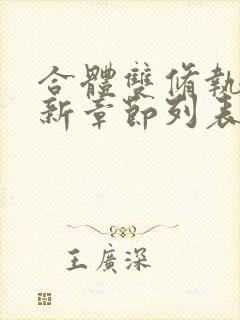 合體雙脩執
新章節列表
王廣深